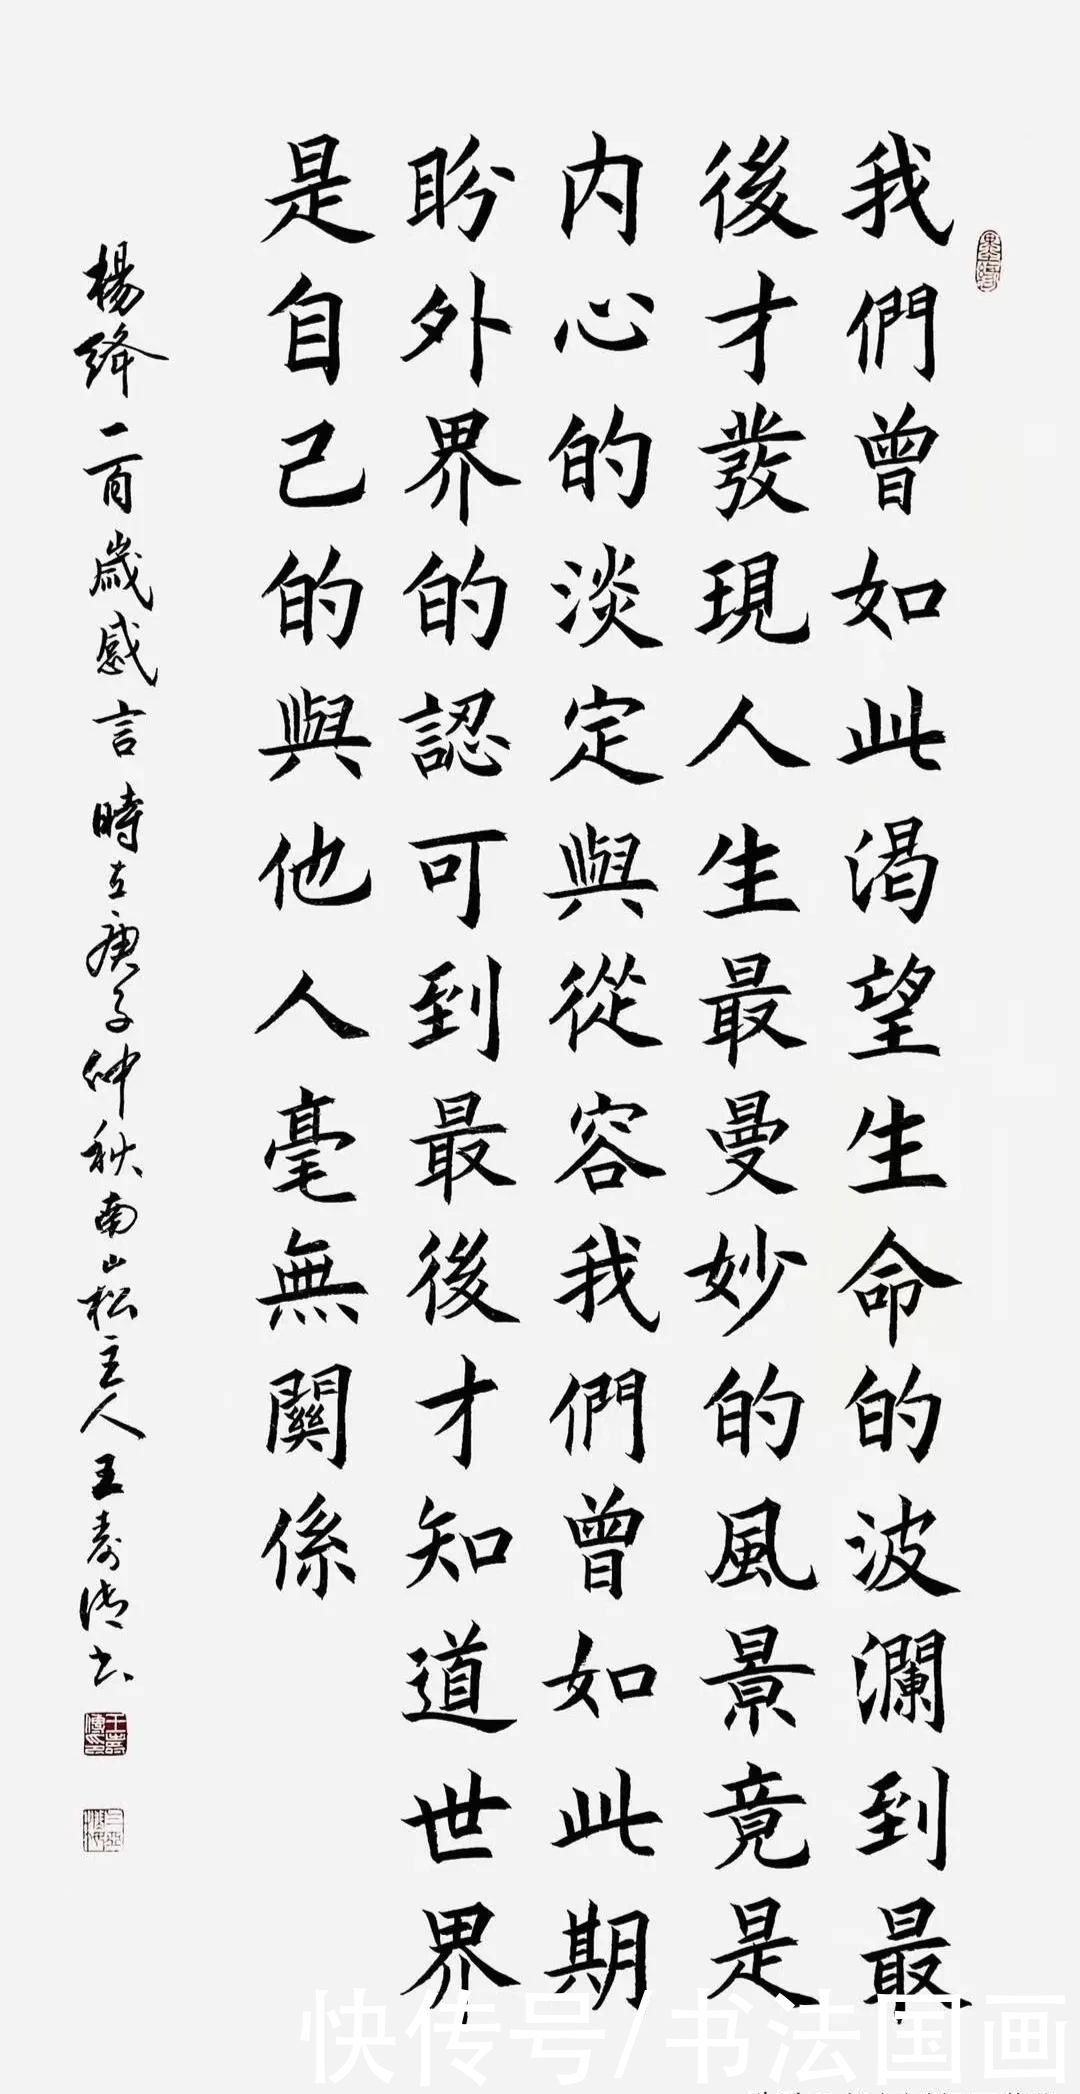 我們曾如此渴望生命的波瀾到最
後才發現人生最曼妙的風景竟是
内心的淡定與從容我們曾如此期
盼外界的認可到最後才知道世界
是自己的與他人毫無關係
楊絳一百歲感言時在庚子仲秋南山松主人王寿书
快传号/书法国画